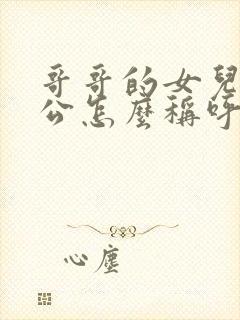 哥哥的女兒
公怎麼稱呼
心塵